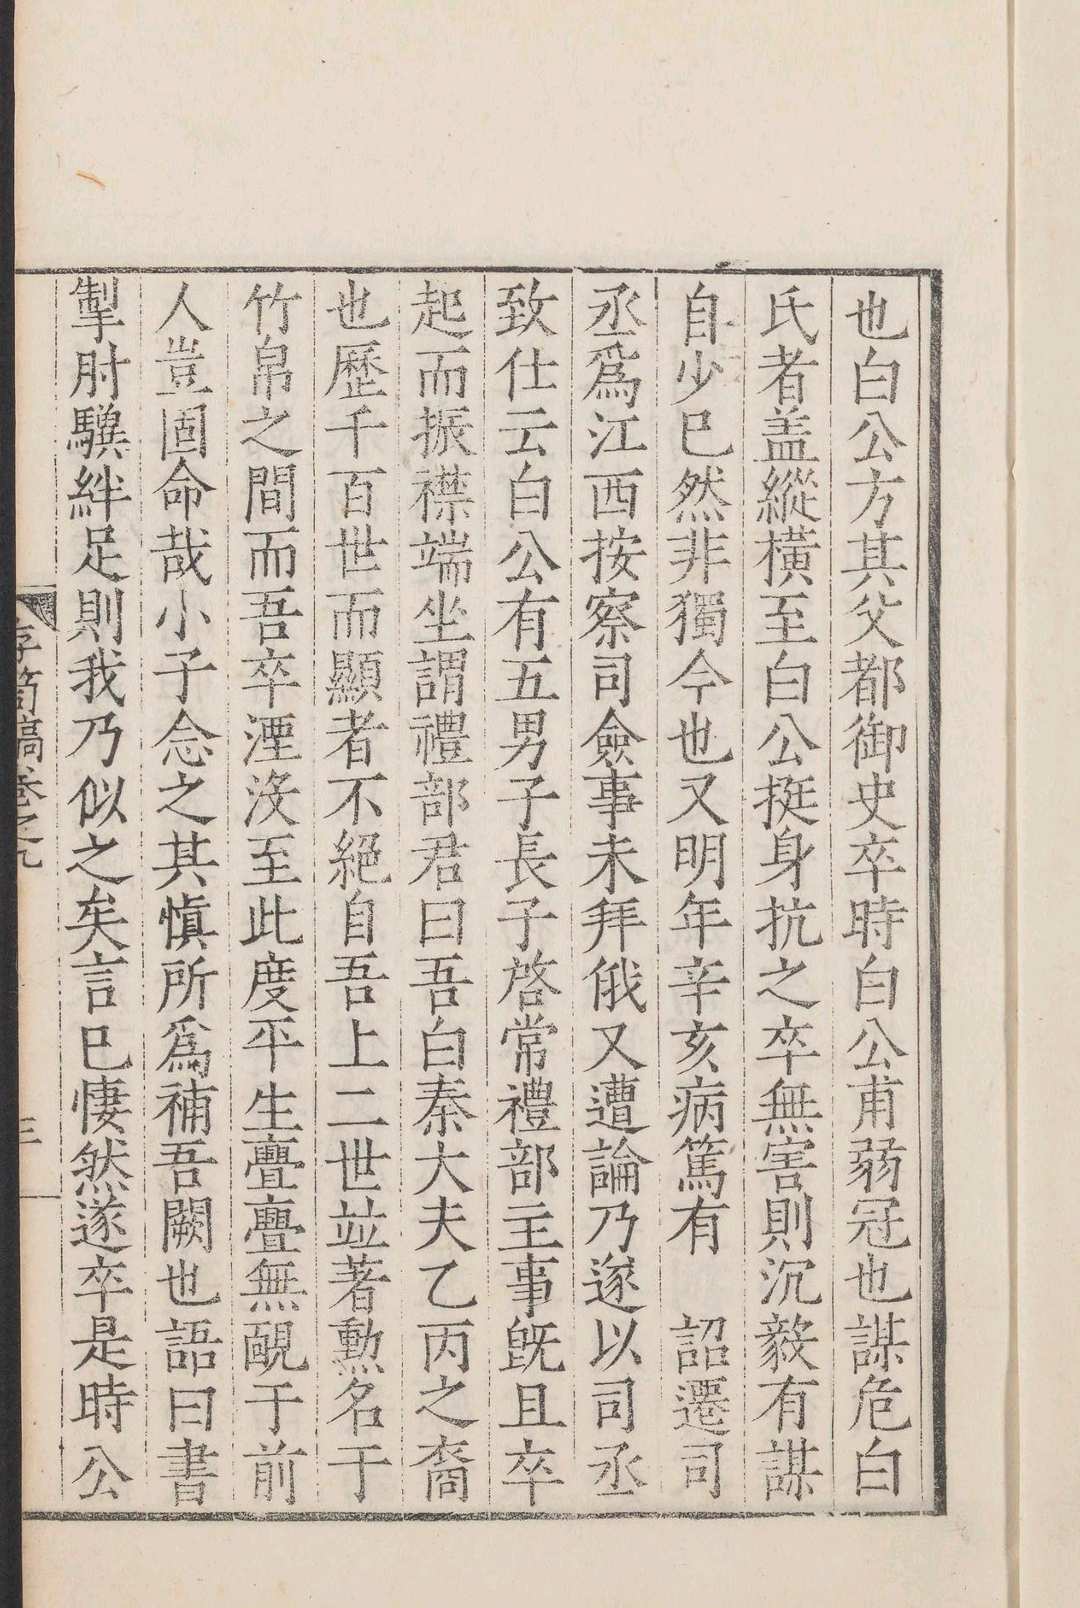 也白公方其父都御史卒時白公甫弱冠也謀危白
氏者盖縱橫至白公挺身抗之卒無害則沉毅有謀
自少已然非獨今也又明年辛亥病篤有　詔遷司
丞爲江西按察司僉事未拜俄又遭論乃遂以司丞
致仕云白公有五男子長子啓常禮部主事旣且卒
起而振襟端坐謂禮部君曰吾白秦大夫乙丙之裔
也歷千百世而顯者不絕自吾上二世並著勲名于
竹帛之間而吾卒湮没至此度平生亹亹無靦于前
人豈固命哉小子念之其慎所爲補吾闕也語曰書
掣肘驥絆足則我乃似之矣言已悽然遂卒是時公
存笥稿卷之九
三